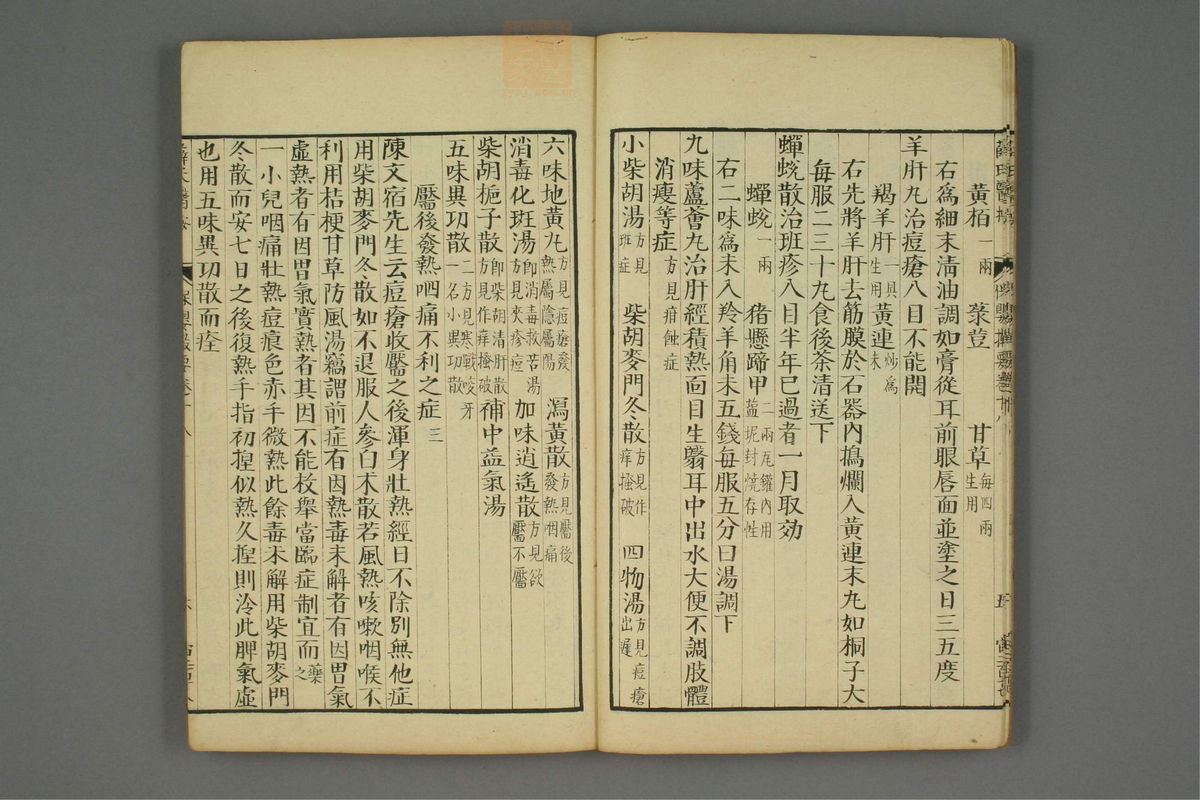 黃栢一兩 菉荳 甘草每四兩生用
右爲細末清油調如膏從耳前眼唇面並塗之日三五度
羊肝丸治痘瘡入目不能開
羯羊肝一具生用黃連炒爲末
右先將羊肝去筋膜於石器內搗爛入黃連末丸如桐子大
每服二三十九食後茶清送下
蟬蛻散治斑疹入目半年已過者一月取効
蟬蛻一兩 猪懸蹄甲二兩瓦鑵內用藍坭封燒存性
右二味爲末入羚羊角末五錢每服五分白湯調下
九味蘆薈丸治肝經積熱面目生翳耳中出水大便不調肢體
消瘦等症方見疳蝕症
小柴胡湯方見班症 柴胡麥門冬散方見作痒搔破 四物湯方見痘瘡出遲
六味地黃丸方見痘瘡發熱屬隱屬陽 瀉黃散方見靨後發熱咽痛
消毒化斑湯卽消毒救苦湯方見夾疹痘 加味逍遙散方見欲靨不靨
柴胡梔子散卽柴胡清肝散方見作痒搔破 補中益氣湯
五味異功散二方見寒戰咬牙一名小異功散
靨後發熱咽痛不利之症三
陳文宿先生云痘瘡收靨之後渾身壯熱經日不除別無他症
用柴胡麥門冬散如不退服人參白朮散若風熱咳嗽咽喉不
利用桔梗甘草防風湯竊謂前症有因熱毒未解者有因胃氣
虛熱者有因胃氣實熱者其因不能枚舉當臨症制宜而藥之
一小兒咽痛壯熱痘痕色赤手微熱此餘毒未解用柴胡麥門
冬散而安七日之後復熱手指初揑似熱久揑則冷此脾氣虛
也用五味異功散而痊